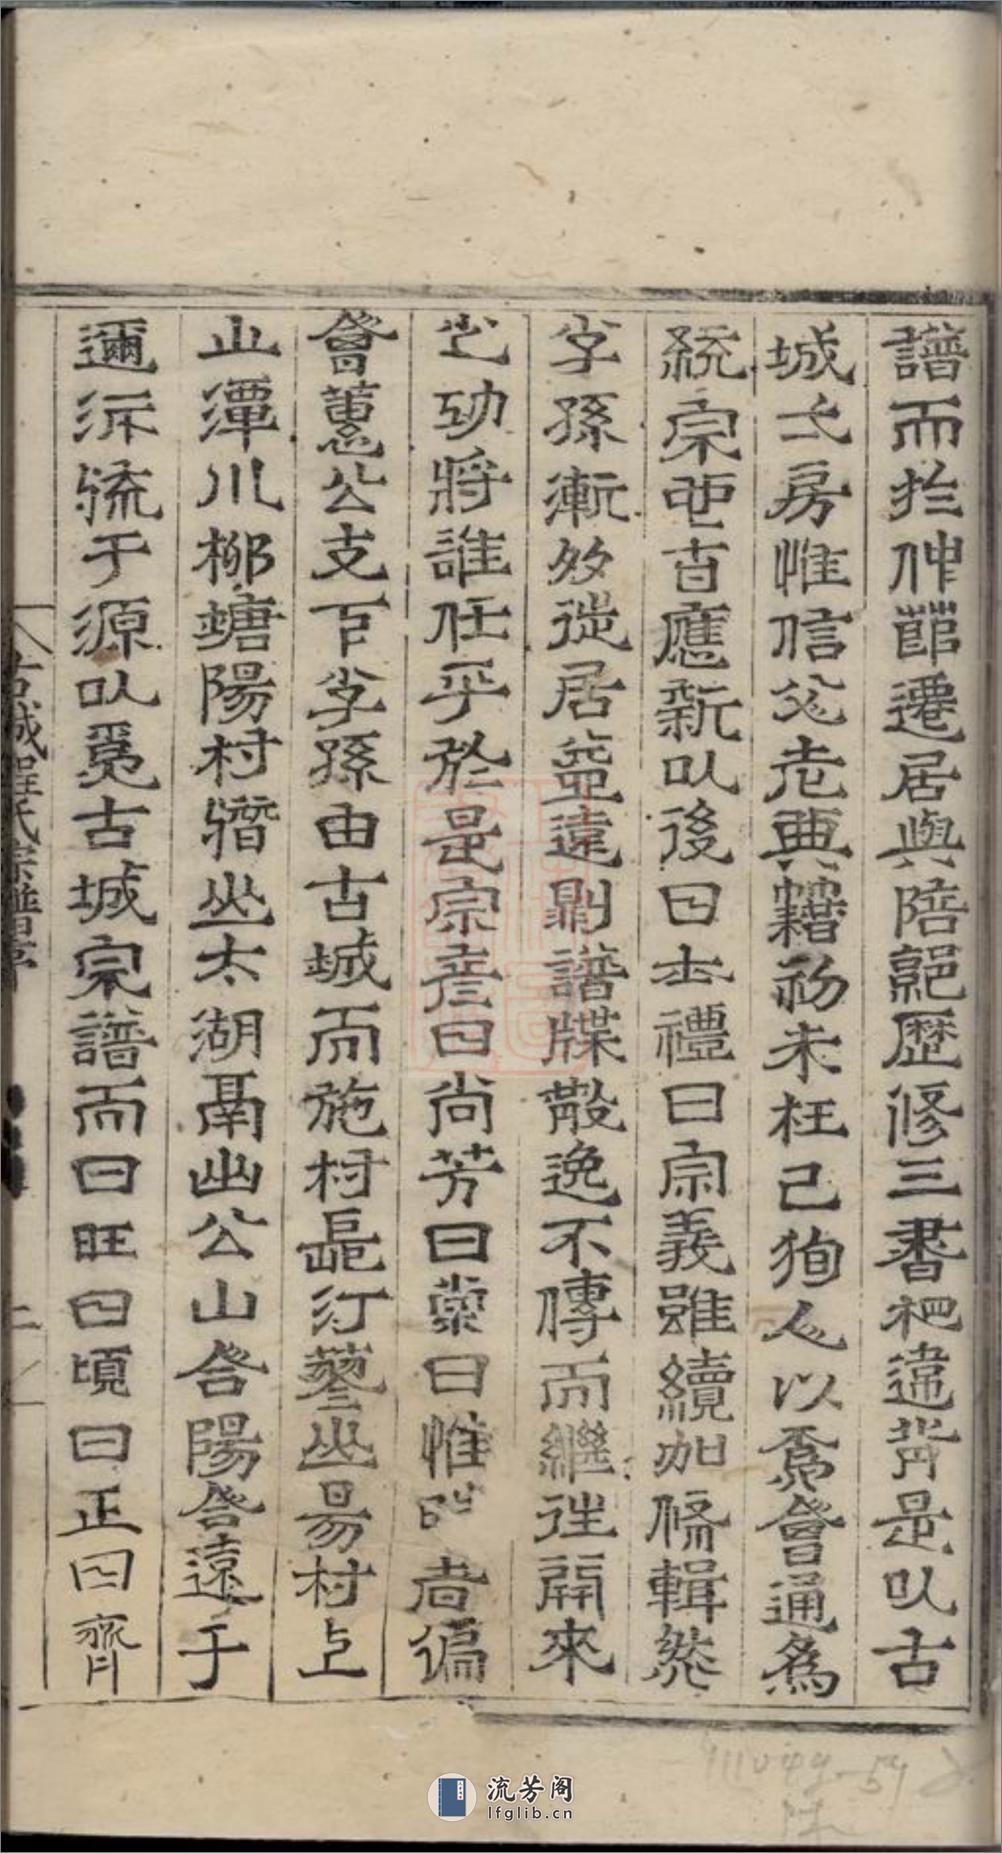 譜而扵仲節遷居與陪郭歷修三書杷違背是以古
城之房惟信公老典籍初未枉己狥人以爲會通爲
統宗也百應新以後曰士禮曰宗義雖續加脩輯然
子孫漸多徙居益遠則譜牒散逸不傳而繼往開來
之功將誰任乎於是宗彥曰尚芳曰棠曰惟 者徧
會蕙公支下子孫由古城而施村長汀蓼山易村上
山潭川柳塘陽村潛山太湖鬲山公山含陽含遠于
邇泝流于源以爲古城宗譜而曰旺曰曰頃曰正曰齊
古城程氏宗譜序
流芳阁
lfglib.cn